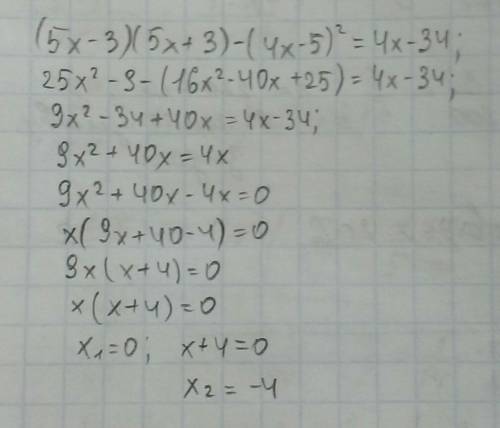 (5x-3)(5x+3)-(4x-5)²=4x-34;
25x²-9-(16x²-40x+25)=4x-34;
9x²-34+40x=4x-34;
9x²+40x=4x
9x²+40x-4x=0
x(9x+40-4)=0
9x(x+4)=0
x(x+4)=0
x₁=0; x+4=0
x₂=-4